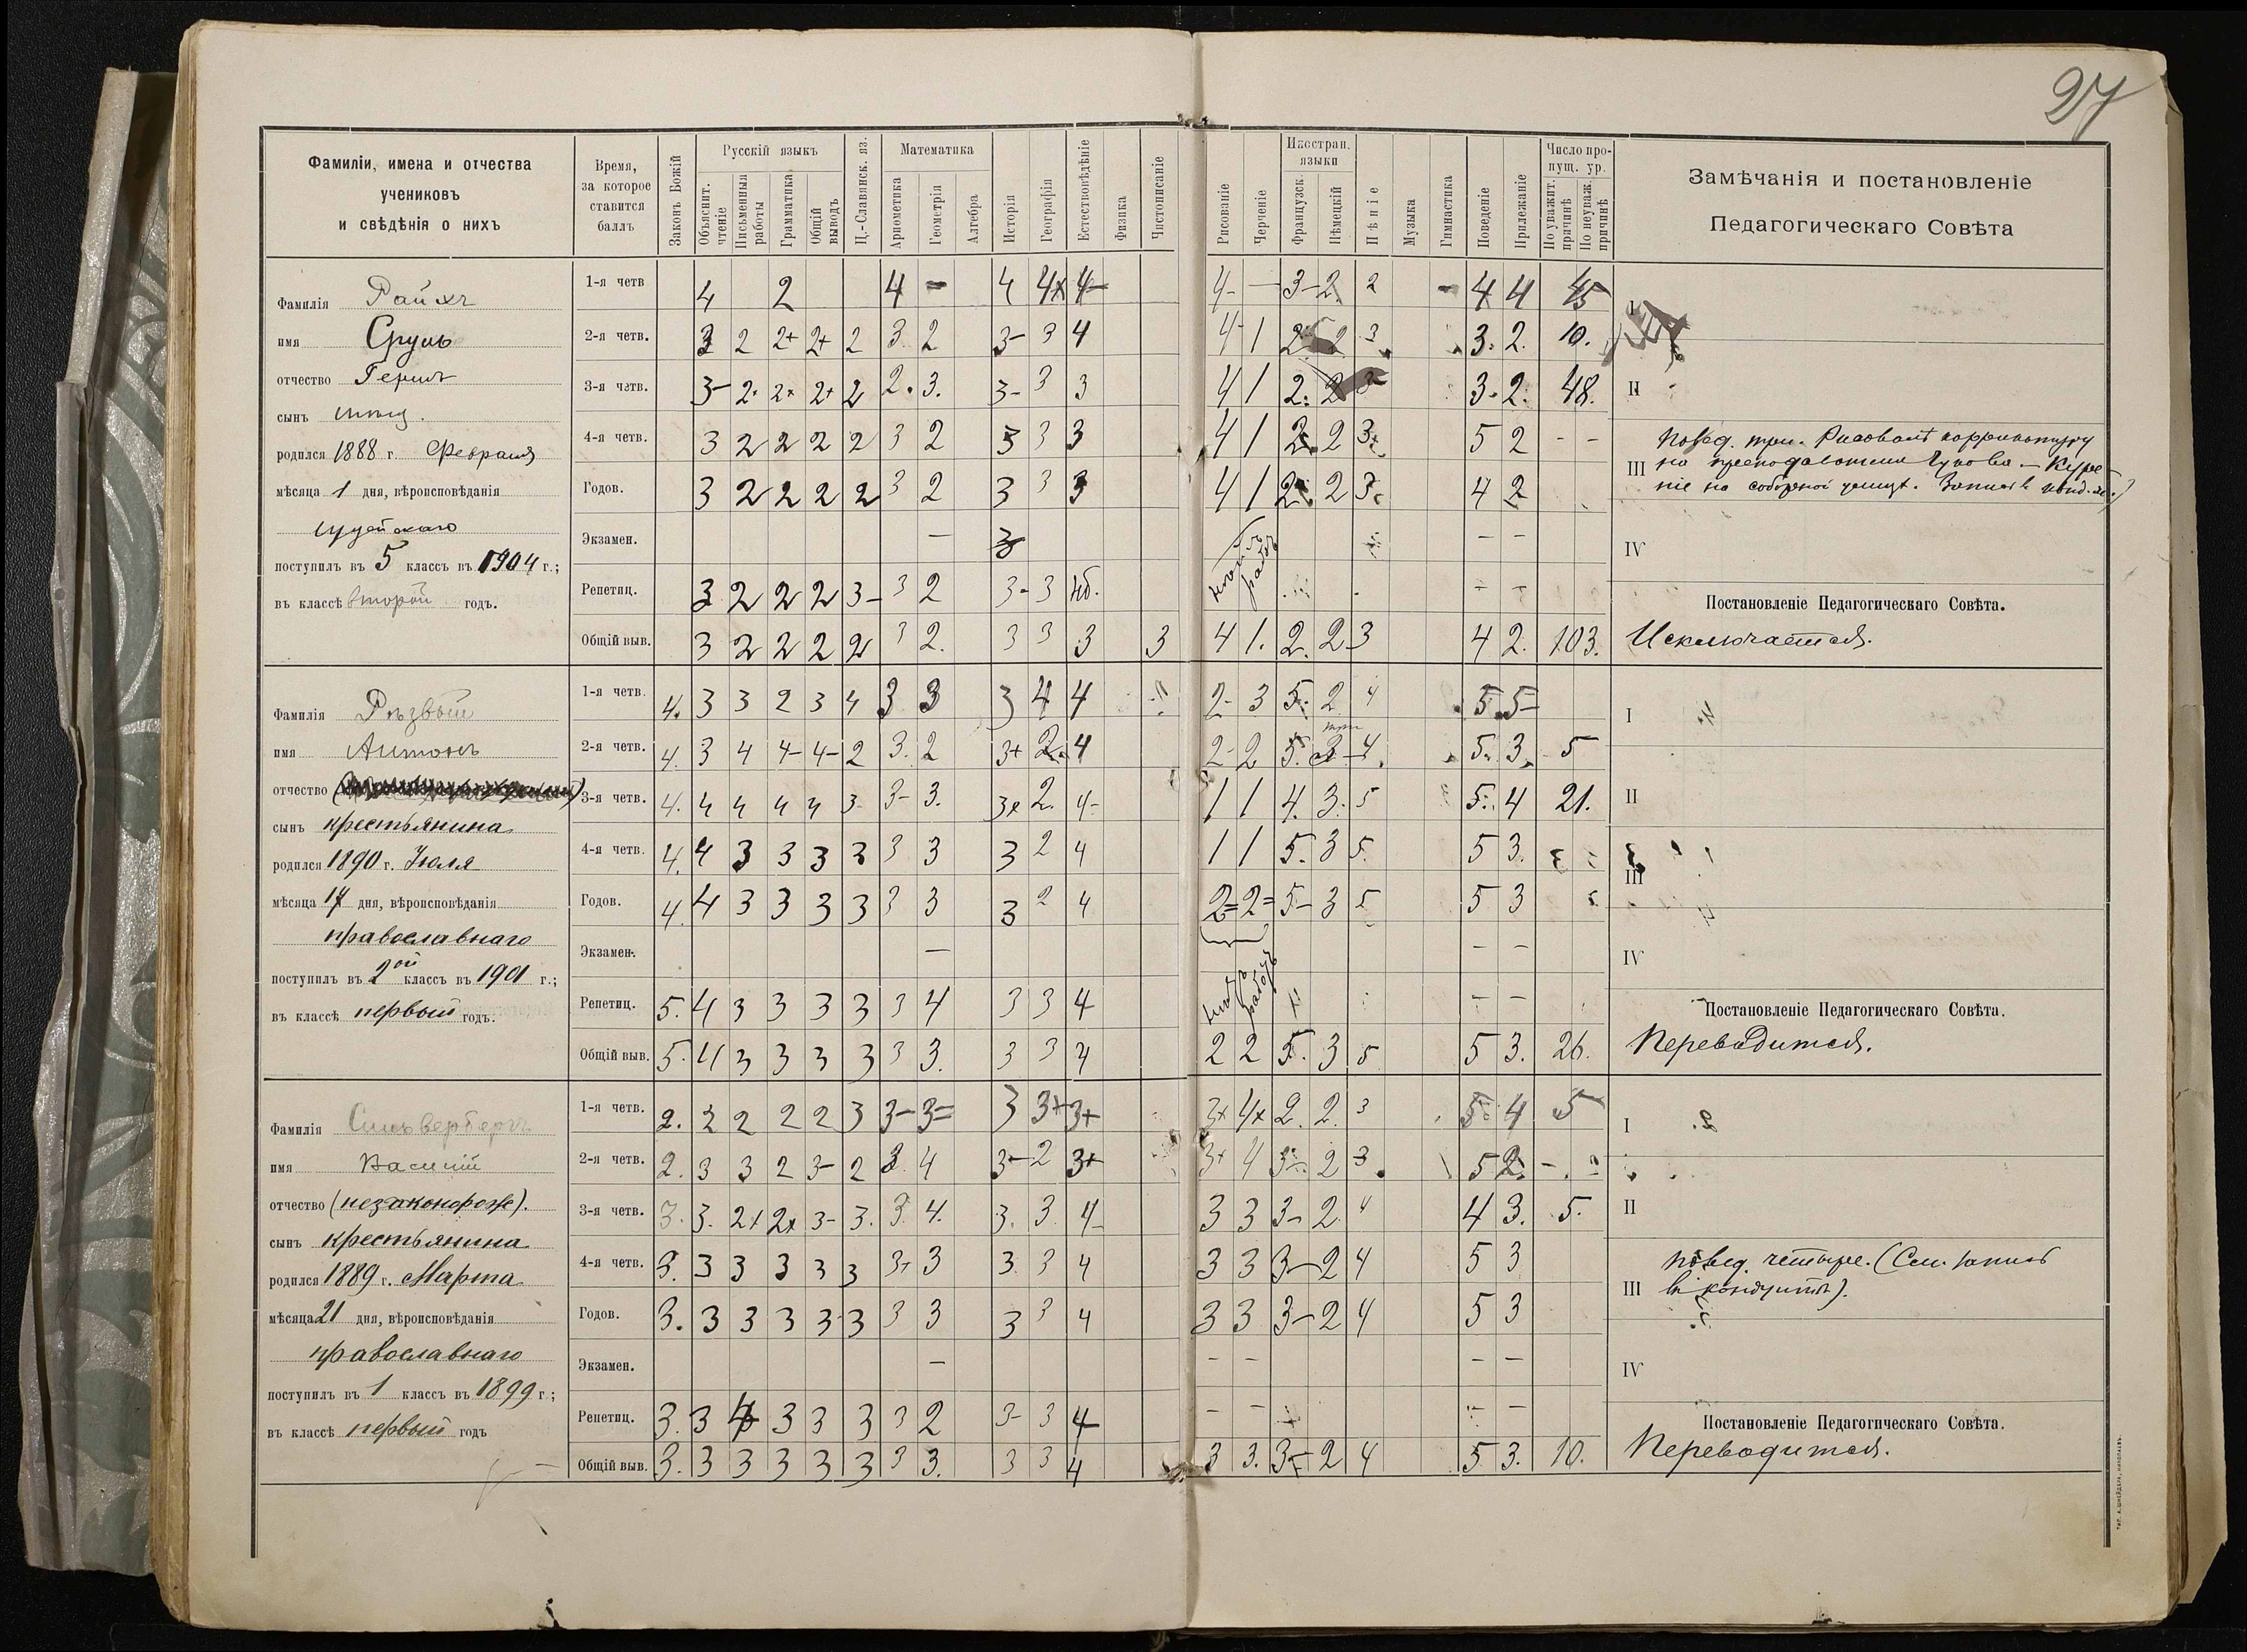 27
Фамиліи, имена и отчества
учениковъ
и свѣдѣнія о нихъ
Время,
за которое
ставится
баллъ
Законъ Божій
Русскій языкъ
Объяснит. чтеніе
Письменныя работы
Грамматика
Общій выводъ
Ц.-Славянск. яз.
Математика
Ариѳметика
Геометрія
Алгебра
Исторія
Географія
Естествовѣдѣніе
Физика
Чистописаніе
Рисованіе
Черченіе
Иностран. языки
Французск.
Нѣмецкій
Пѣніе
Музыка
Гимнастика
Поведеніе
Прилежаніе
Число пропущ. ур.
По уважит. причинѣ
По неуваж. причинѣ
Замѣчанія и постановленіе
Педагогическаго Совѣта
Фамилія Райхъ
имя Сруль
отчество Гершъ
сынъ
родился 1888 г. Февраля
мѣсяца 1 дня, вѣроисповѣданія
іудейскаго
поступилъ въ 5 классъ въ 1904 г.;
въ классѣ второй годъ.
1-я четв 4 2 4 - 4 4× 4- 4- — 3- 2. 2 - 4 4 45
2-я четв. 3 2 2+ 2+ 2 3. 2 3- 3 4 4- 1 2. 2 3 3. 2. 10.
3-я четв. 3- 2. 2× 2+ 2 2. 3. 3- 3 3 4 1 2. 2 3 3. 2. 48.
4-я четв. 3 2 2 2 2 3 2 3 3 3 4 1 2 2 3 5 2 - -
Годов. 3 2 2 2 2 3 2 3 3 3 4 1 2 2 3 4 2
Экзамен. — 3 — —
Репетиц. 3 2 2 2 3- 3 2 3- 3 нб. - -
Общій выв. 3 2 2 2 2 3 2. 3 3 3 3 4 1. 2. 2 3 4 2. 103.
I
II
III Повед. три. Рисовалъ
на преподавателя — Куре-
ніе на соборной улицѣ.
IV
Постановленіе Педагогическаго Совѣта.
Исключается.
Фамилія Рѣзвый
имя Антонъ
отчество
сынъ крестьянина
родился 1890 г. Іюля
мѣсяца 17 дня, вѣроисповѣданія
православнаго
поступилъ въ 2ой классъ въ 1901 г.;
въ классѣ первый годъ.
1-я четв. 4. 3 3 2 3 4 3 3 3 4 4 2- 3 5. 2 4 5. 5-
2-я четв. 4. 3 4 4- 4- 2 3. 2 3+ 2. 4 2- 2 5. 3 4 5. 3. 5
3-я четв. 4. 4 4 4 4 3 3- 3. 3× 2. 4- 1 1 4. 3. 5 5. 4 21.
4-я четв. 4. 4 3 3 3 3 3 3 3 2 4 1 1 5. 3 5. 5 3.
Годов. 4. 4 3 3 3 3 3 3 3 2 4 2= 2= 5- 3 5 5 3
Экзамен. — — —
Репетиц. 5. 4 3 3 3 3 3 4 3 3 4 - —
Общій выв. 5. 4 3 3 3 3 3 3. 3 3 4 2 2 5. 3 5 5 3. 26.
I
II
III
IV
Постановленіе Педагогическаго Совѣта.
Переводится.
Фамилія Сильвербергъ
имя Василій
отчество (незаконорож).
сынъ крестьянина
родился 1889 г. Марта
мѣсяца 21 дня, вѣроисповѣданія
православнаго
поступилъ въ 1 классъ въ 1899 г.;
въ классѣ первый годъ
1-я четв. 2. 2 2 2 2 3 3- 3= 3 3+ 3+ 3+ 4× 2. 2. 3 5. 4 5
2-я четв. 2. 3 3 2 3- 2 3. 4 3- 2 3+ 3+ 4 3- 2 3 5 2. -
3-я четв. 3. 3. 2+ 2× 3- 3. 3. 4. 3. 3 4- 3 3 3- 2. 4 4 3. 5.
4-я четв. 3. 3 3 3 3 3 3+ 3 3 3 4 3 3 3- 2 4 5 3
Годов. 3. 3 3 3 3 3 3 3 3 3 4 3 3 3- 2 4 5 3
Экзамен. — - - - —
Репетиц. 3. 3 4 3 3 3 3 2 3- 3 4 - - - —
Общій выв. 3. 3 3 3 3 3 3 3. 3 3 4 3 3. 3- 2 4 5 3. 10.
I
II
III Повед. четыре. (См. запись
въ кондуитѣ).
IV
Постановленіе Педагогическаго Совѣта.
Переводится.